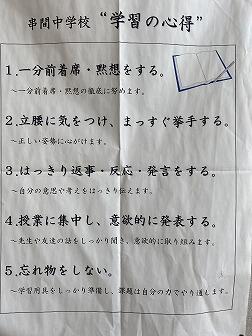 串間中学校 “学習の心得”
1.一分前着席・黙想をする。
～一分前着席・黙想の徹底に努めます。
2.立腰に気をつけ、まっすぐ挙手する。
～正しい姿勢に心がけます。
3.はっきり返事・反応・発言をする。
～自分の意思や考えをはっきり伝えます。
4.授業に集中し、意欲的に発表する。
～先生や友達の話をしっかり聞き、意欲的に取り組みます。
5.忘れ物をしない。
～学習用具をしっかり準備し、課題は自分の力でやり通します。